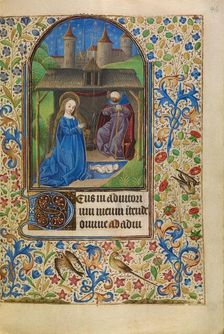 Deus in adiutori
um meum intende
Domine ad adiu